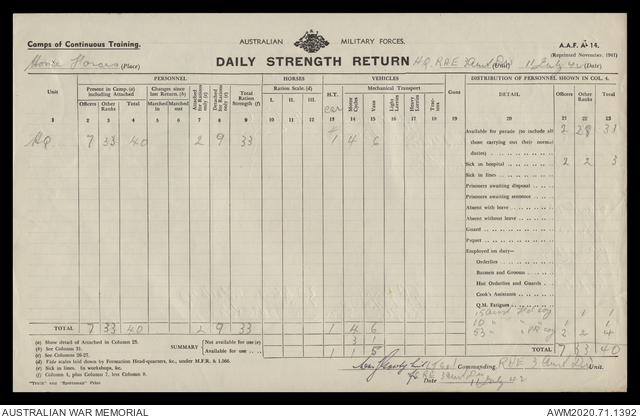 Camps of Continuous Training.
AUSTRALIAN MILITARY FORCES.
A.A.F. A 14.
(Reprinted November, 1941)
Home Forces (Place)
DAILY STRENGTH RETURN
H.Q. RAE 3 Aust Div (Unit) 11 July 42 (Date)
PERSONNEL
HORSES
VEHICLES
DISTRIBUTION OF PERSONNEL SHOWN IN COL. 4.
Unit
Present in Camp, (a) including Attached
Changes since last Return. (b)
Attached for Rations only (c)
Detached for Rations only (c)
Total Ration Strength (f)
Ration Scale. (d)
H.T.
Mechanical Transport
Guns
DETAIL
Officers
Other Ranks
Total
Officers
Other Ranks
Total
Marched in
Marched out
I.
II.
III.
car
Motor Cycles
Vans
Light Lorries
Heavy Lorries
Tractors
1 2 3 4 5 6 7 8 9 10 11 12 13 14 15 16 17 18 19 20 21 22 23
HQ 7 33 40 2 9 33 1 4 6
Available for parade (to include all those carrying out their normal duties)
Sick in hospital 2
Sick in lines
Prisoners awaiting disposal
Prisoners awaiting sentence
Absent with leave
Absent without leave
Guard
Piquet
Employed on duty—
Orderlies
Batmen and Grooms
Hut Orderlies and Guards
Cook's Assistants
Q.M. Fatigues
TOTAL 7 33 40 2 9 33 1 4 6
SUMMARY
Not available for use (e) 3 1
Available for use 1 1 5
TOTAL 7 33 40
(a) Show detail of Attached in Column 25.
(b) See Column 31.
(c) See Columns 26-27.
(d) Fate scales laid down by Formation Head-quarters, &c., under M.F.R. & I.066.
(e) Sick in lines. In workshops, &c.
(f) Column 4, plus Column 7, less Column 8.
Commanding RAE 3 Aust Div Unit.
Date 11 July 42
AUSTRALIAN WAR MEMORIAL
AWM2020.71.1392